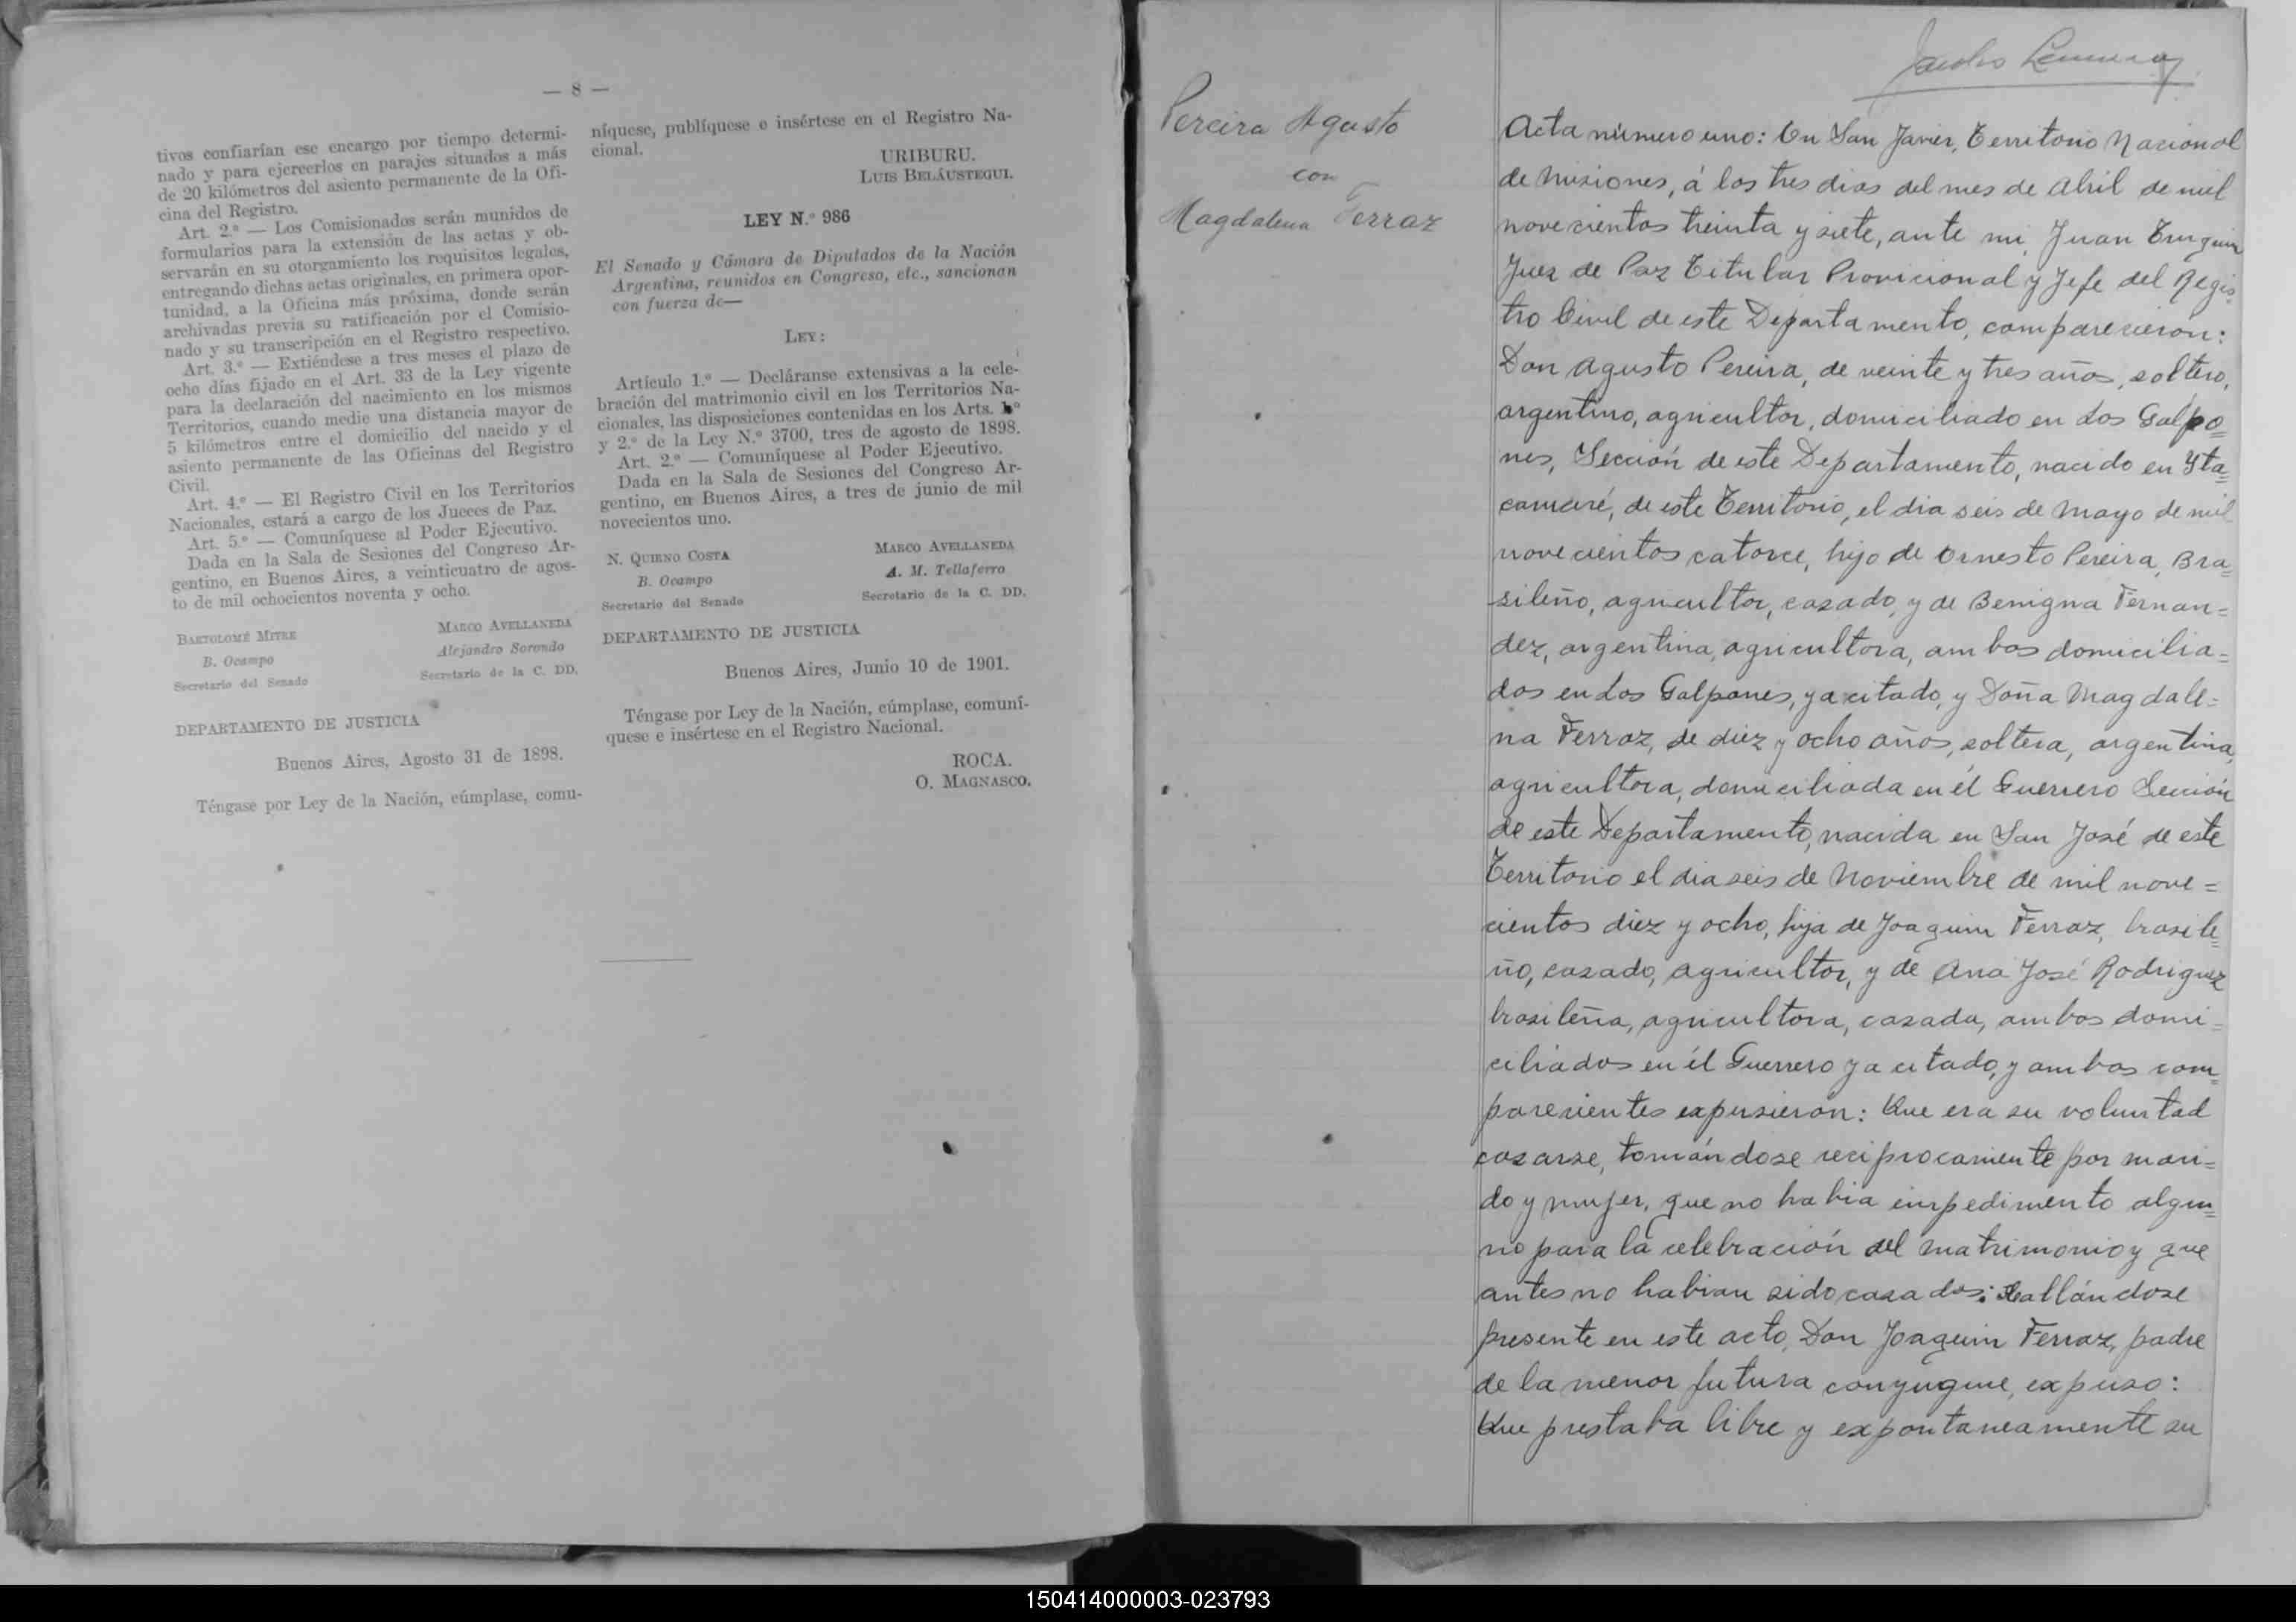 — 8 —
tivos confiarían ese encargo por tiempo determi-
nado y para ejercerlos en parajes situados a más
de 20 kilómetros del asiento permanente de la Ofi-
cina del Registro.
Art. 2.º — Los Comisionados serán munidos de
formularios para la extensión de las actas y ob-
servarán en su otorgamiento los requisitos legales,
entregando dichas actas originales, en primera opor-
tunidad, a la Oficina más próxima, donde serán
archivadas previa su ratificación por el Comisio-
nado y su transcripción en el Registro respectivo.
Art. 3.º — Extiéndese a tres meses el plazo de
ocho días fijado en el Art. 33 de la Ley vigente
para la declaración del nacimiento en los mismos
Territorios, cuando medie una distancia mayor de
5 kilómetros entre el domicilio del nacido y el
asiento permanente de las Oficinas del Registro
Civil.
Art. 4.º — El Registro Civil en los Territorios
Nacionales, estará a cargo de los Jueces de Paz.
Art. 5.º — Comuníquese al Poder Ejecutivo.
Dada en la Sala de Sesiones del Congreso Ar-
gentino, en Buenos Aires, a veinticuatro de agos-
to de mil ochocientos noventa y ocho.
BARTOLOMÉ MITRE MARCO AVELLANEDA
B. Ocampo Alejandro Sorondo
Secretario del Senado Secretario de la C. DD.
DEPARTAMENTO DE JUSTICIA
Buenos Aires, Agosto 31 de 1898.
Téngase por Ley de la Nación, cúmplase, comu-
níquese, publíquese e insértese en el Registro Na-
cional.
URIBURU.
LUIS BELÁUSTEGUI.
LEY N.º 986
El Senado y Cámara de Diputados de la Nación
Argentina, reunidos en Congreso, etc., sancionan
con fuerza de—
LEY:
Artículo 1.º — Decláranse extensivas a la cele-
bración del matrimonio civil en los Territorios Na-
cionales, las disposiciones contenidas en los Arts. 1º
y 2.º de la Ley N.º 3700, tres de agosto de 1898.
Art. 2.º — Comuníquese al Poder Ejecutivo.
Dada en la Sala de Sesiones del Congreso Ar-
gentino, en Buenos Aires, a tres de junio de mil
novecientos uno.
N. QUIRNO COSTA MARCO AVELLANEDA
B. Ocampo A. M. Tellaferro
Secretario del Senado Secretario de la C. DD.
DEPARTAMENTO DE JUSTICIA
Buenos Aires, Junio 10 de 1901.
Téngase por Ley de la Nación, cúmplase, comuní-
quese e insértese en el Registro Nacional.
ROCA.
O. MAGNASCO.
Pereira Agusto
con
Magdalena Ferraz
Acta número uno: En San Javier, Territorio Nacional
de Misiones, á los tres dias del mes de Abril de mil
novecientos treinta y siete, ante mi Juan
Juez de Paz Titular Provicional y Jefe del Regis
tro Civil de este Departamento, comparecieron:
Don Agusto Pereira, de veinte y tres años, soltero,
argentino, agricultor, domiciliado en Los Galpo=
nes, Sección de este Departamento, nacido en Yta=
camaré, de este Territorio, el dia seis de Mayo de mil
novecientos catorce, hijo de Ernesto Pereira, Bra=
sileño, agricultor, casado, y de Benigna Fernan=
dez, argentina, agricultora, ambos domicilia=
dos en Los Galpones, ya citado, y Doña Magdale=
na Ferraz, de diez y ocho años, soltera, argentina,
agricultora, domiciliada en él Guerrero Sección
de este Departamento, nacida en San José de este
Territorio el dia seis de Noviembre de mil nove=
cientos diez y ocho, hija de Joaquin Ferraz, brasile=
ño, casado, agricultor, y de Ana José Rodriguez
brasileña, agricultora, casada, ambos domi=
ciliados en él Guerrero ya citado, y ambos com=
parecientes expusieron: Que era su voluntad
casarse, tomándose reciprocamente por mari=
do y mujer, que no habia impedimento algu=
no para la celebración del matrimonio y que
antes no habian sido casados: Hallándose
presente en este acto, Don Joaquin Ferraz, padre
de la menor futura conyugue, expuso:
Que prestaba libre y expontaneamente su
150414000003-023793